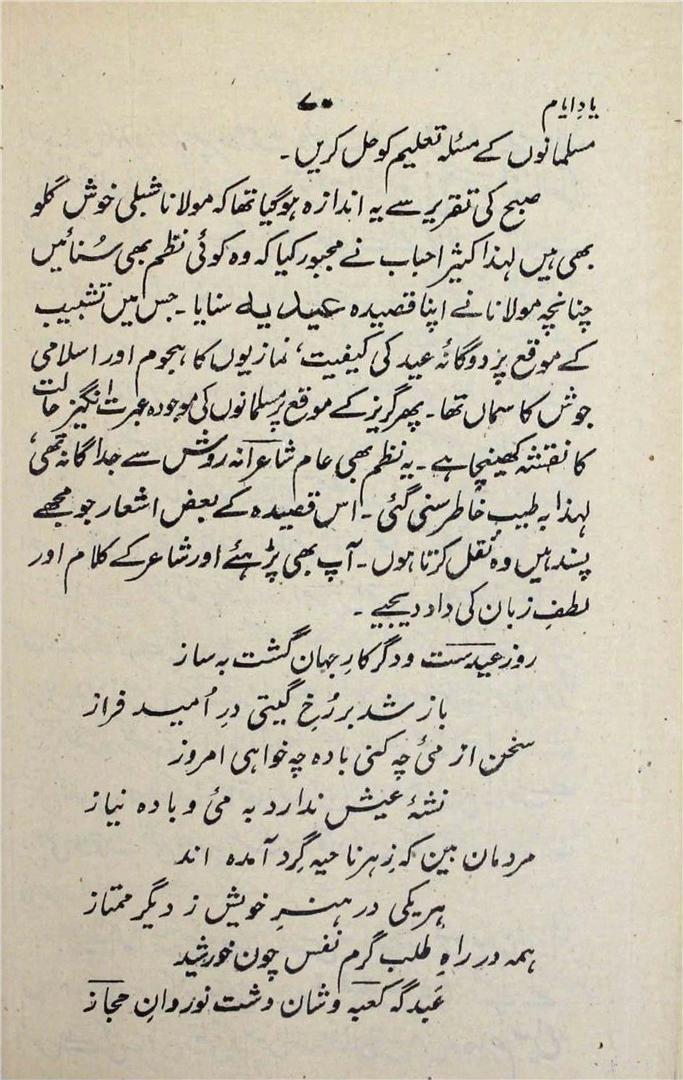 یادِایام
۷۰
مسلمانوں کے مسئلہ تعلیم کو حل کریں۔
صبح کی تقریر سے یہ اندازہ ہوگیا تھا کہ مولانا شبلی خوش گلو
بھی ہیں لہذا کثیر احباب نے مجبور کیا کہ وہ کوئی نظم بھی سُنائیں
چنانچہ مولانا نے اپنا قصیدہ عیدیہ سنایا۔ جس میں تشبیب
کے موقع پر دوگانۂ عید کی کیفیت، نمازیوں کا ہجوم اور اسلامی
جوش کا سماں تھا۔ پھر گریز کے موقع پر مسلمانوں کی موجودہ عبرت انگیز حالت
کا نقشہ کھینچا ہے۔ یہ نظم بھی عام شاعرانہ روش سے جداگانہ تھی،
لہذا بہ طیب خاطر سنی گئی۔ اس قصیدہ کے بعض اشعار جو مجھے
پسند ہیں وہ نقل کرتا ہوں۔ آپ بھی پڑہئے اور شاعر کے کلام اور
لطفِ زبان کی داد دیجیے۔
روز عیدست و دگر کارِ جہان گشت بہ ساز
باز شد بر رُخِ گیتی درِ اُمید فراز
سخن از مئ چہ کنی بادہ چہ خواہی امروز
نشۂ عیش ندارد بہ مئ و بادہ نیاز
مردمان بین کہ زِ ہر ناحیہ گِرد آمدہ اند
ہریکی در ہنرِ خویش ز دیگر ممتاز
ہمہ در راہِ طلب گرم نفس چون خورشید
عَیدگہ کعبہ و شان دشت نوردانِ حجاز